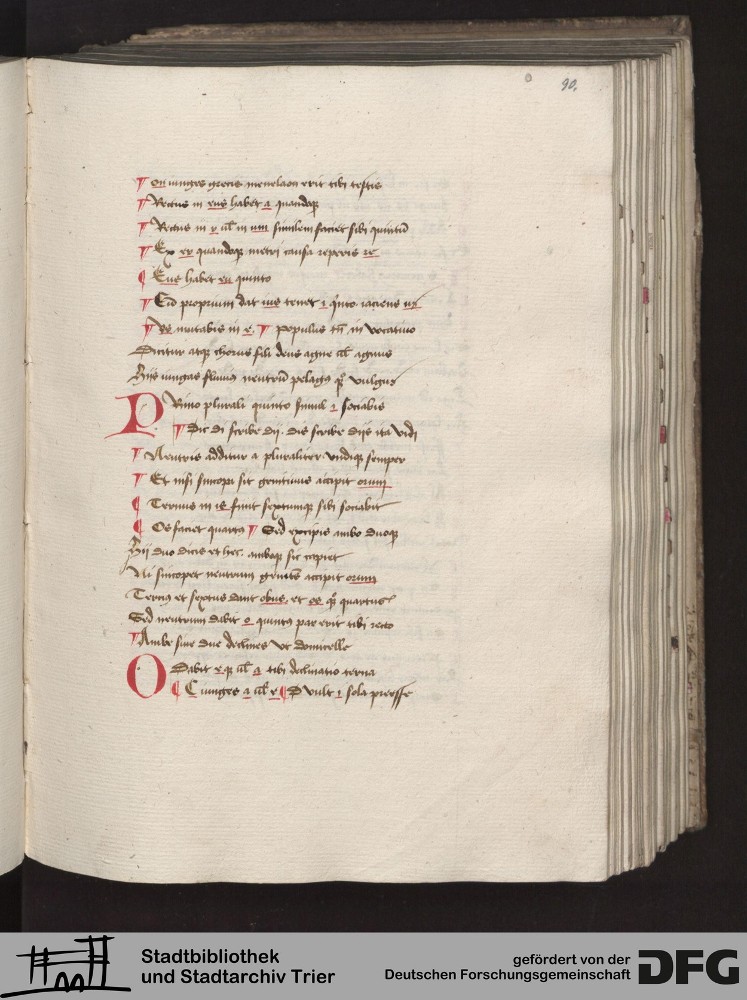 90.
¶ on iunges grecis menelaon erit tibi testis
¶ Rectus in eus habet a quandoq
¶ Rectus in r ul in um similem faciet sibi quintū
¶ Ex er quandoq metri causa reperis re
¶ Eus habet eu quinto
¶ Cid proprium dat ius tenet i qinto iaciens
¶ Us mutabis in e. ¶ populus tn in vocatiuo
Dicitur atq chorus fili deus agne ul agnus
Hiis iungas fluuius neutrū pelagus qr vulgus
PRimo plurali quinto simul i sociabis
¶ Dic di scribe dij. dis scribe dijs ita vidi
¶ Neutris additur a pluraliter vndiq semper
¶ Et nisi sincopa sit genitiuus accipit orum
¶ Ternus in is finit sextumq sibi sociabit
¶ Os faciet quartus ¶ Sed excipis ambo duoq
Hij duo dicis et hec. ambaq sic
Ni sincopet neutrum accipit orum
Tercius et sextus dant obus. et os qr quartus
Sed neutrum dabit o. quintus par erit tibi recto
¶ Ambe siue due declines ut domicelle
O Dabit e q ul a tibi declinatio terna
¶ C iunges a ul e ¶ D vult i sola preesse
Stadtbibliothek
und Stadtarchiv Trier
gefördert von der
Deutschen Forschungsgemeinschaft
DFG